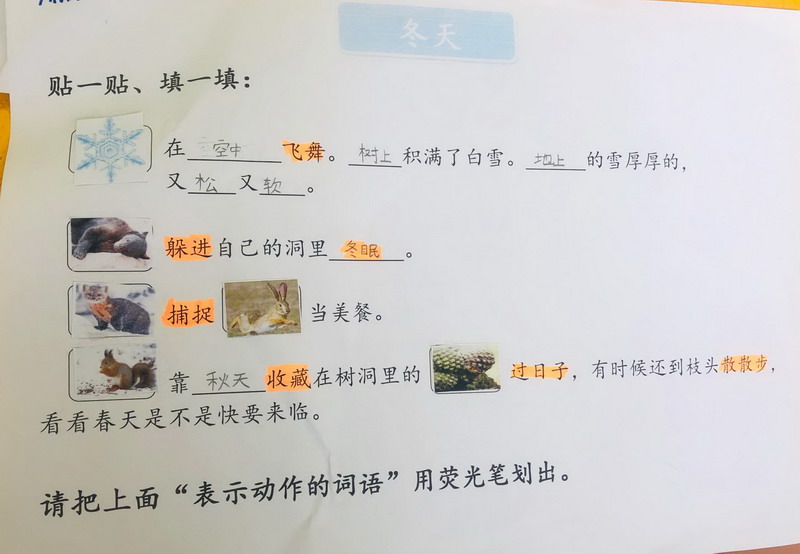 冬天
贴一贴、填一填：
在空中飞舞。树上积满了白雪。地上的雪厚厚的，
又松又软。
躲进自己的洞里冬眠。
捕捉当美餐。
靠秋天收藏在树洞里的过日子，有时候还到枝头散散步，
看看春天是不是快要来临。
请把上面“表示动作的词语”用荧光笔划出。